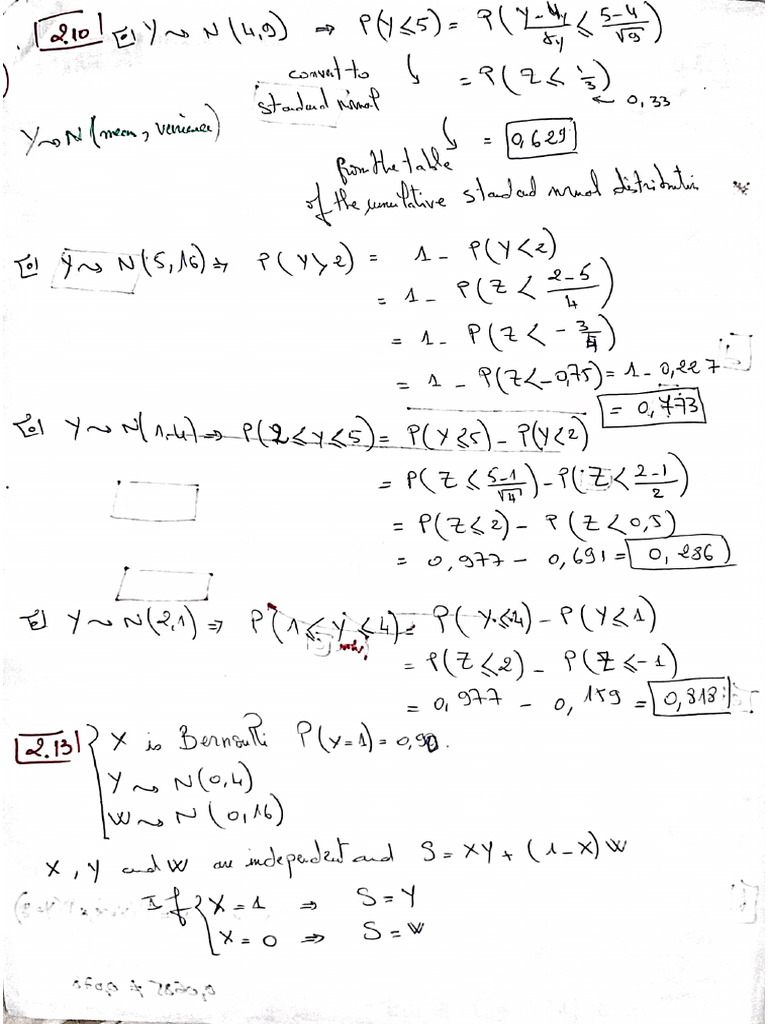 2.10 a) Y ~ N(4,9) ⇒ P(Y ≤ 5) = P( (Y - μy)/σy ≤ (5-4)/√9 )
convert to standard normal = P(Z ≤ 1/3) ← 0,33
Y ~ N(mean,
= 0,629
from the table
of the cumulative standard normal distribution
Y ~ N(5,16) ⇒ P(Y > 2) = 1 - P(Y < 2)
= 1 - P(Z < (2-5)/4)
= 1 - P(Z < - 3/4)
= 1 - P(Z < -0,75) = 1 - 0,227
= 0,773
Y ~ N(1,4) ⇒ P(2 ≤ Y ≤ 5) = P(Y ≤ 5) - P(Y < 2)
= P(Z ≤ (5-1)/√4) - P(Z < (2-1)/2)
= P(Z ≤ 2) - P(Z < 0,5)
= 0,977 - 0,691 = 0,286
Y ~ N(2,1) ⇒ P(1 ≤ Y ≤ 4) = P(Y ≤ 4) - P(Y ≤ 1)
= P(Z ≤ 2) - P(Z ≤ -1)
= 0,977 - 0,159 = 0,818
2.13 X is Bernoulli P(X=1) = 0,90.
Y ~ N(0,4)
W ~ N(0,16)
X, Y and W are independent and S = XY + (1-X)W
If X = 1 ⇒ S = Y
X = 0 ⇒ S = W